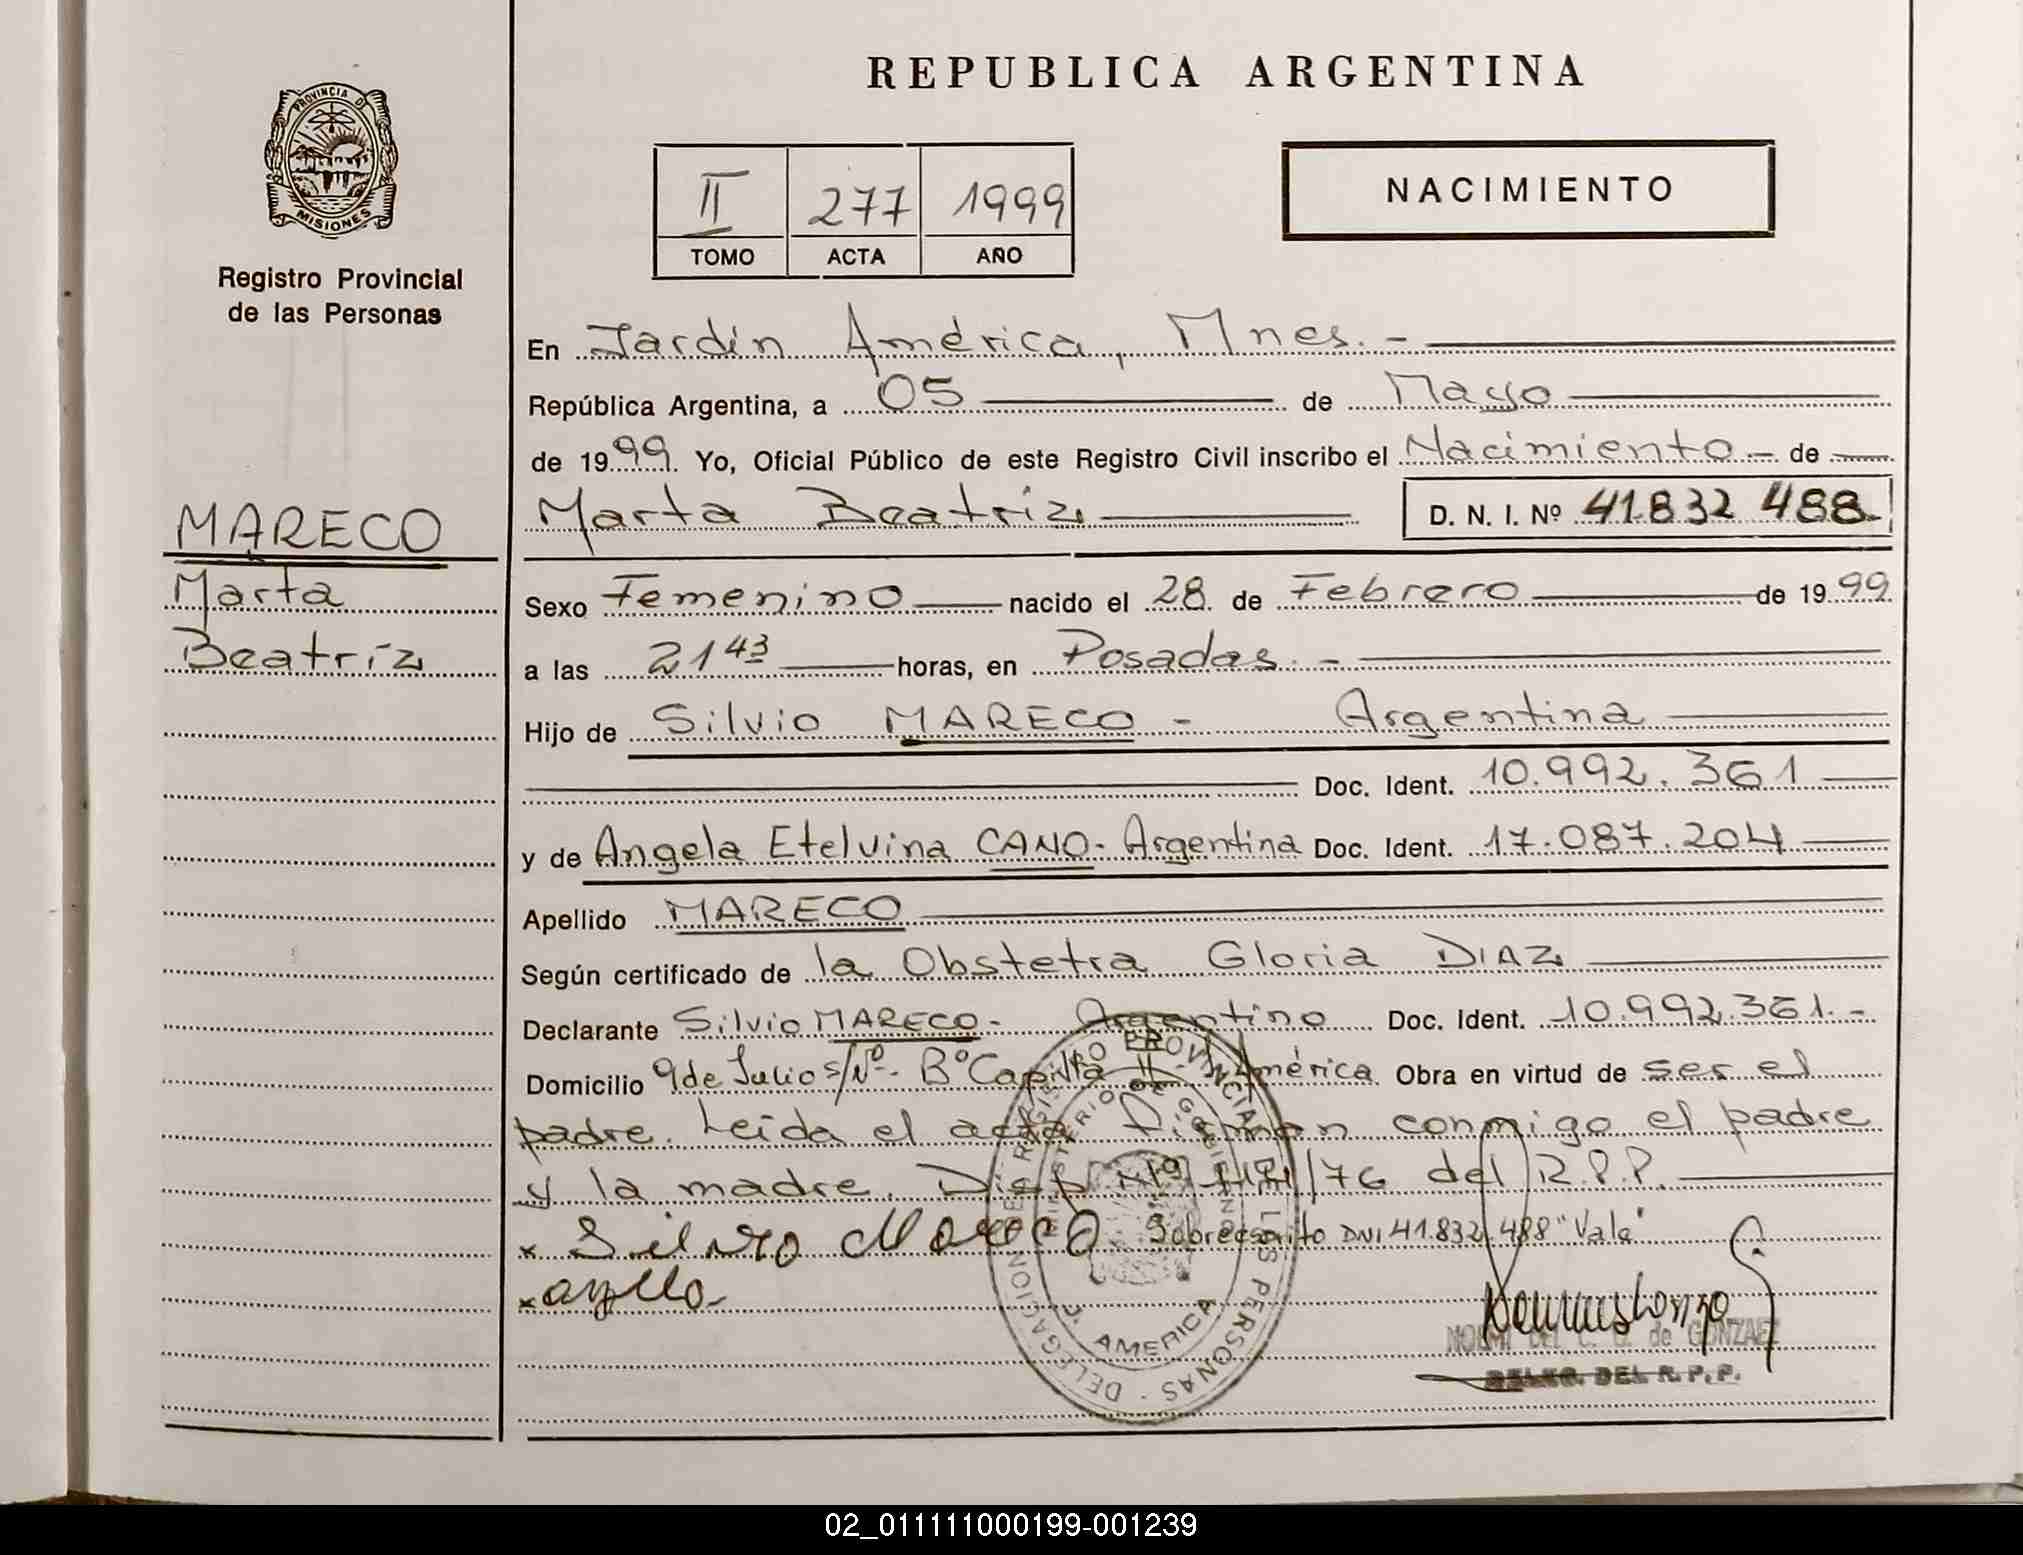 REPUBLICA ARGENTINA
PROVINCIA DE
MISIONES
Registro Provincial
de las Personas
II 277 1999
TOMO ACTA AÑO
NACIMIENTO
MARECO
Marta
Beatríz
En Jardín América, Mnes.-
República Argentina, a 05 de Mayo
de 1999. Yo, Oficial Público de este Registro Civil inscribo el Nacimiento - de
Marta Beatríz D. N. I. Nº 41.832 488
Sexo Femenino nacido el 28 de Febrero de 1999
a las 21 43 horas, en Posadas. -
Hijo de Silvio MARECO - Argentina
Doc. Ident. 10.992.361
y de Angela Etelvina CANO - Argentina Doc. Ident. 17.087.204
Apellido MARECO
Según certificado de la Obstetra Gloria DIAZ
Declarante Silvio MARECO - Argentino Doc. Ident. 10.992.361.-
Domicilio 9 de Julio s/Nº - Bº Capilla II - J. América Obra en virtud de ser el
padre. Leída el acta Firman conmigo el padre
y la madre. Disp Nº /76 del R.P.P.
x Silvio Mareco Sobreescrito DNI 41.832.488 "Vale"
x
DELEGACION REGISTRO PROVINCIAL DE LAS PERSONAS
MINISTERIO DE GOBIERNO
AMERICA
NORMA DEL C. G. de GONZALEZ
DELEG. DEL R.P.P.
02_011111000199-001239